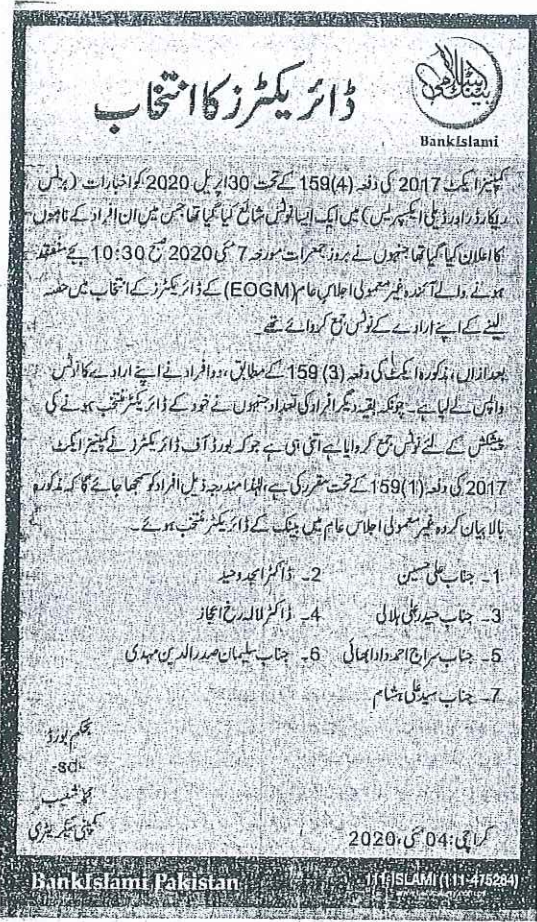 بینک اسلامی
BankIslami
ڈائریکٹرز کا انتخاب
کمپنیز ایکٹ 2017 کی دفعہ (4)159 کے تحت 30 اپریل 2020 کو اخبارات (بزنس
ریکارڈر اور ڈیلی ایکسپریس) میں ایک ایسا نوٹس شائع کیا گیا تھا جس میں ان افراد کے ناموں
کا اعلان کیا گیا تھا جنہوں نے بروز جمعرات مورخہ 7 مئی 2020 صبح 10:30 بجے منعقد
ہونے والے آئندہ غیر معمولی اجلاس عام (EOGM) کے ڈائریکٹرز کے انتخاب میں حصہ
لینے کے اپنے ارادے کے نوٹس جمع کروائے تھے۔
بعد ازاں، مذکورہ ایکٹ کی دفعہ (3) 159 کے مطابق، دو افراد نے اپنے ارادے کا نوٹس
واپس لے لیا ہے۔ چونکہ بقیہ دیگر افراد کی تعداد جنہوں نے خود کے ڈائریکٹر منتخب ہونے کی
پیشکش کے لئے نوٹس جمع کروایا ہے اتنی ہی ہے جو کہ بورڈ آف ڈائریکٹرز نے کمپنیز ایکٹ
2017 کی دفعہ (1)159 کے تحت مقرر کی ہے، لہٰذا مندرجہ ذیل افراد کو سمجھا جائے گا کہ مذکورہ
بالا بیان کردہ غیر معمولی اجلاس عام میں بینک کے ڈائریکٹر منتخب ہوئے۔
1۔ جناب علی حسین 2۔ ڈاکٹر امجد وحید
3۔ جناب حیدر علی ہلالی 4۔ ڈاکٹر لالہ رخ اعجاز
5۔ جناب سراج احمد دادابھائی 6۔ جناب سلیمان صدرالدین مہدی
7۔ جناب سید علی ہشام
بحکم بورڈ
-sd-
محمد شعیب
کمپنی سیکریٹری
کراچی: 04 مئی، 2020
BankIslami Pakistan 111-ISLAMI (111-475264)